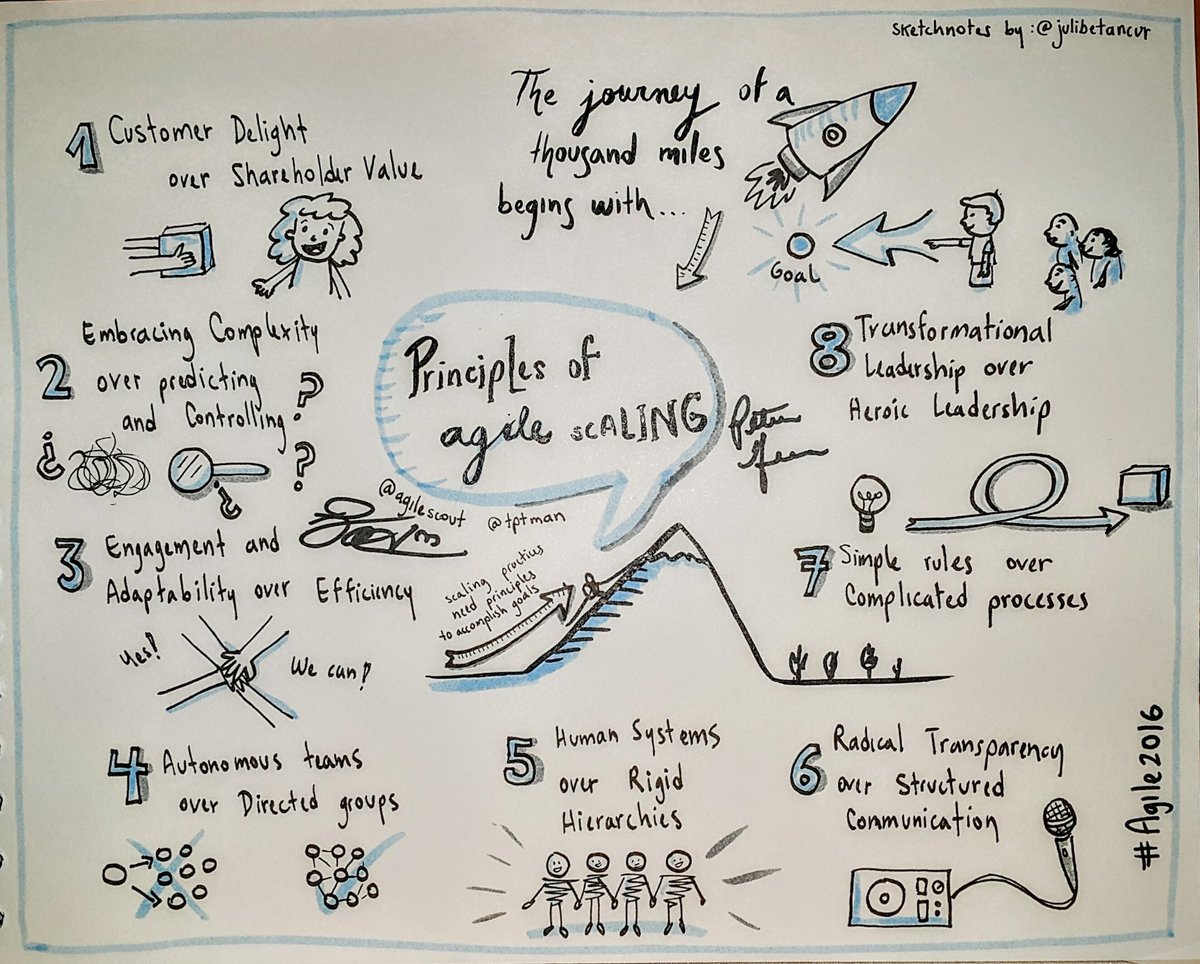 sketchnotes by: @julibetancur
The journey of a
thousand miles
begins with...
Goal
Principles of
agile SCALING
@agilescout
@tptman
scaling practices
need principles
to accomplish goals
1 Customer Delight
over Shareholder Value
2 Embracing Complexity
over predicting
and Controlling
? ? ¿ ¿
3 Engagement and
Adaptability over Efficiency
Yes!
We can!
4 Autonomous teams
over Directed groups
5 Human Systems
over Rigid
Hierarchies
6 Radical Transparency
over Structured
Communication
7 Simple rules over
Complicated processes
8 Transformational
Leadership over
Heroic Leadership
#Agile2016